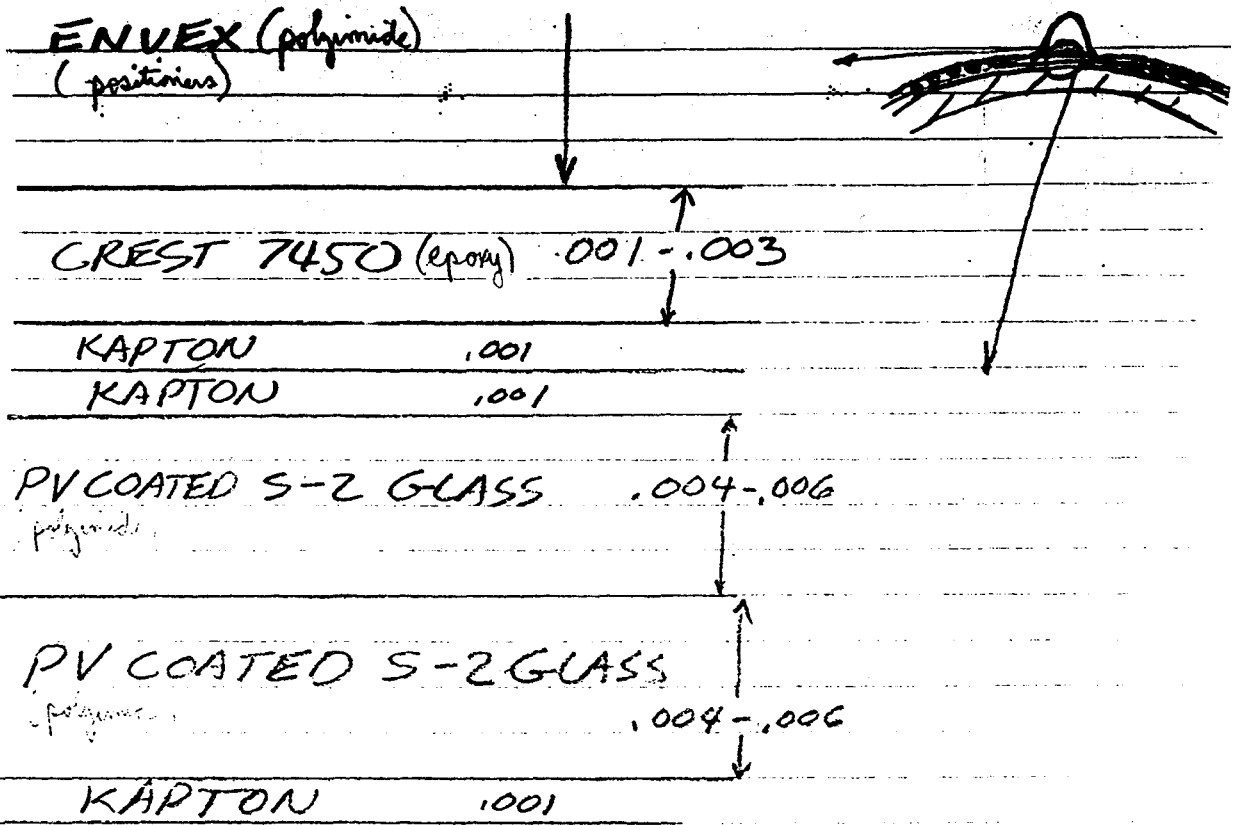 ENVEX (polyimide)
(positioners)
CREST 7450 (epoxy) .001-.003
KAPTON .001
KAPTON .001
PV COATED S-2 GLASS .004-.006
polyimide
PV COATED S-2 GLASS
.004-.006
KAPTON .001